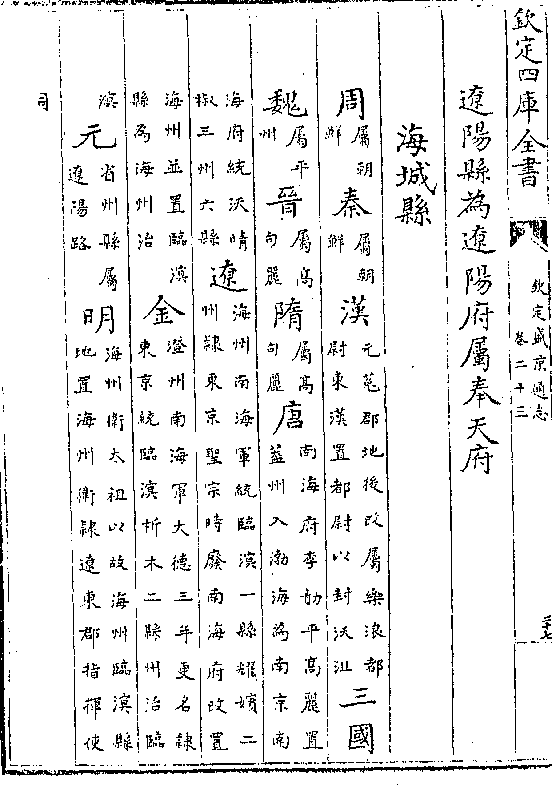 欽定四庫全書
欽定盛京通志
卷二十三
遼陽縣為遼陽府屬奉天府
海城縣
周屬朝鮮秦屬朝鮮漢元菟郡地後改屬樂浪都尉東漢置都尉以封沃沮三國
魏屬平州晉屬高句麗隋屬高句麗唐南海府李勣平高麗置葢州入渤海為南京南
海府統沃晴椒三州六縣遼海州南海軍統臨溟一縣耀嬪二州隸東京聖宗時廢南海府改置
海州並置臨溟縣為海州治金澄州南海軍大德三年更名隸東京統臨溟析木二縣州治臨
溟元省州縣屬遼陽路明海州衛太祖以故海州臨溟縣地置海州衛隸遼東郡指揮使
司